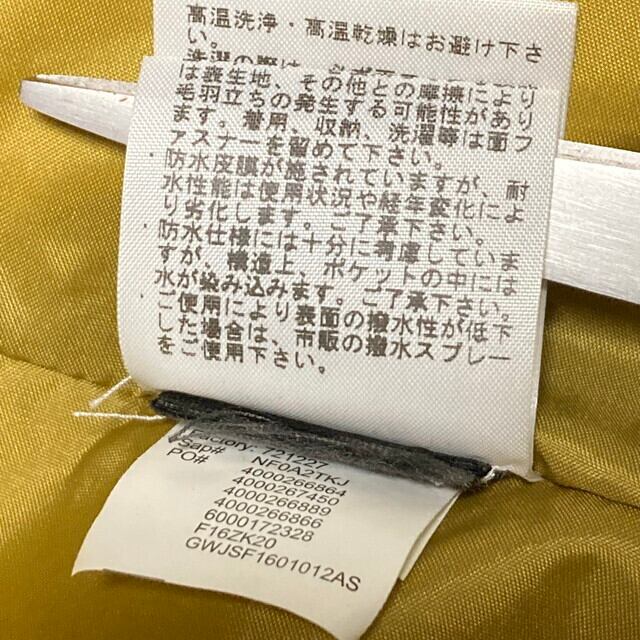 高温洗浄・高温乾燥はお避け下さ
い。
は表生地、その他との摩擦により
毛羽立ちの発生する可能性があり
ます。着用、収納、洗濯等は面フ
ァスナーを留めて下さい。
防水皮膜が施されていますが、耐
水性能は使用状況や経年変化によ
り劣化します。ご了承下さい。
防水仕様には十分に考慮していま
すが、構造上、ポケットの中には
水が染み込みます。ご了承下さい。
ご使用により表面の撥水性が低下
した場合は、市販の撥水スプレー
をご使用下さい。
Factory: 721227
Sap# NF0A2TKJ
PO# 4000266864
4000267450
4000266889
4000266866
6000172328
F16ZK20
GWJSF1601012AS